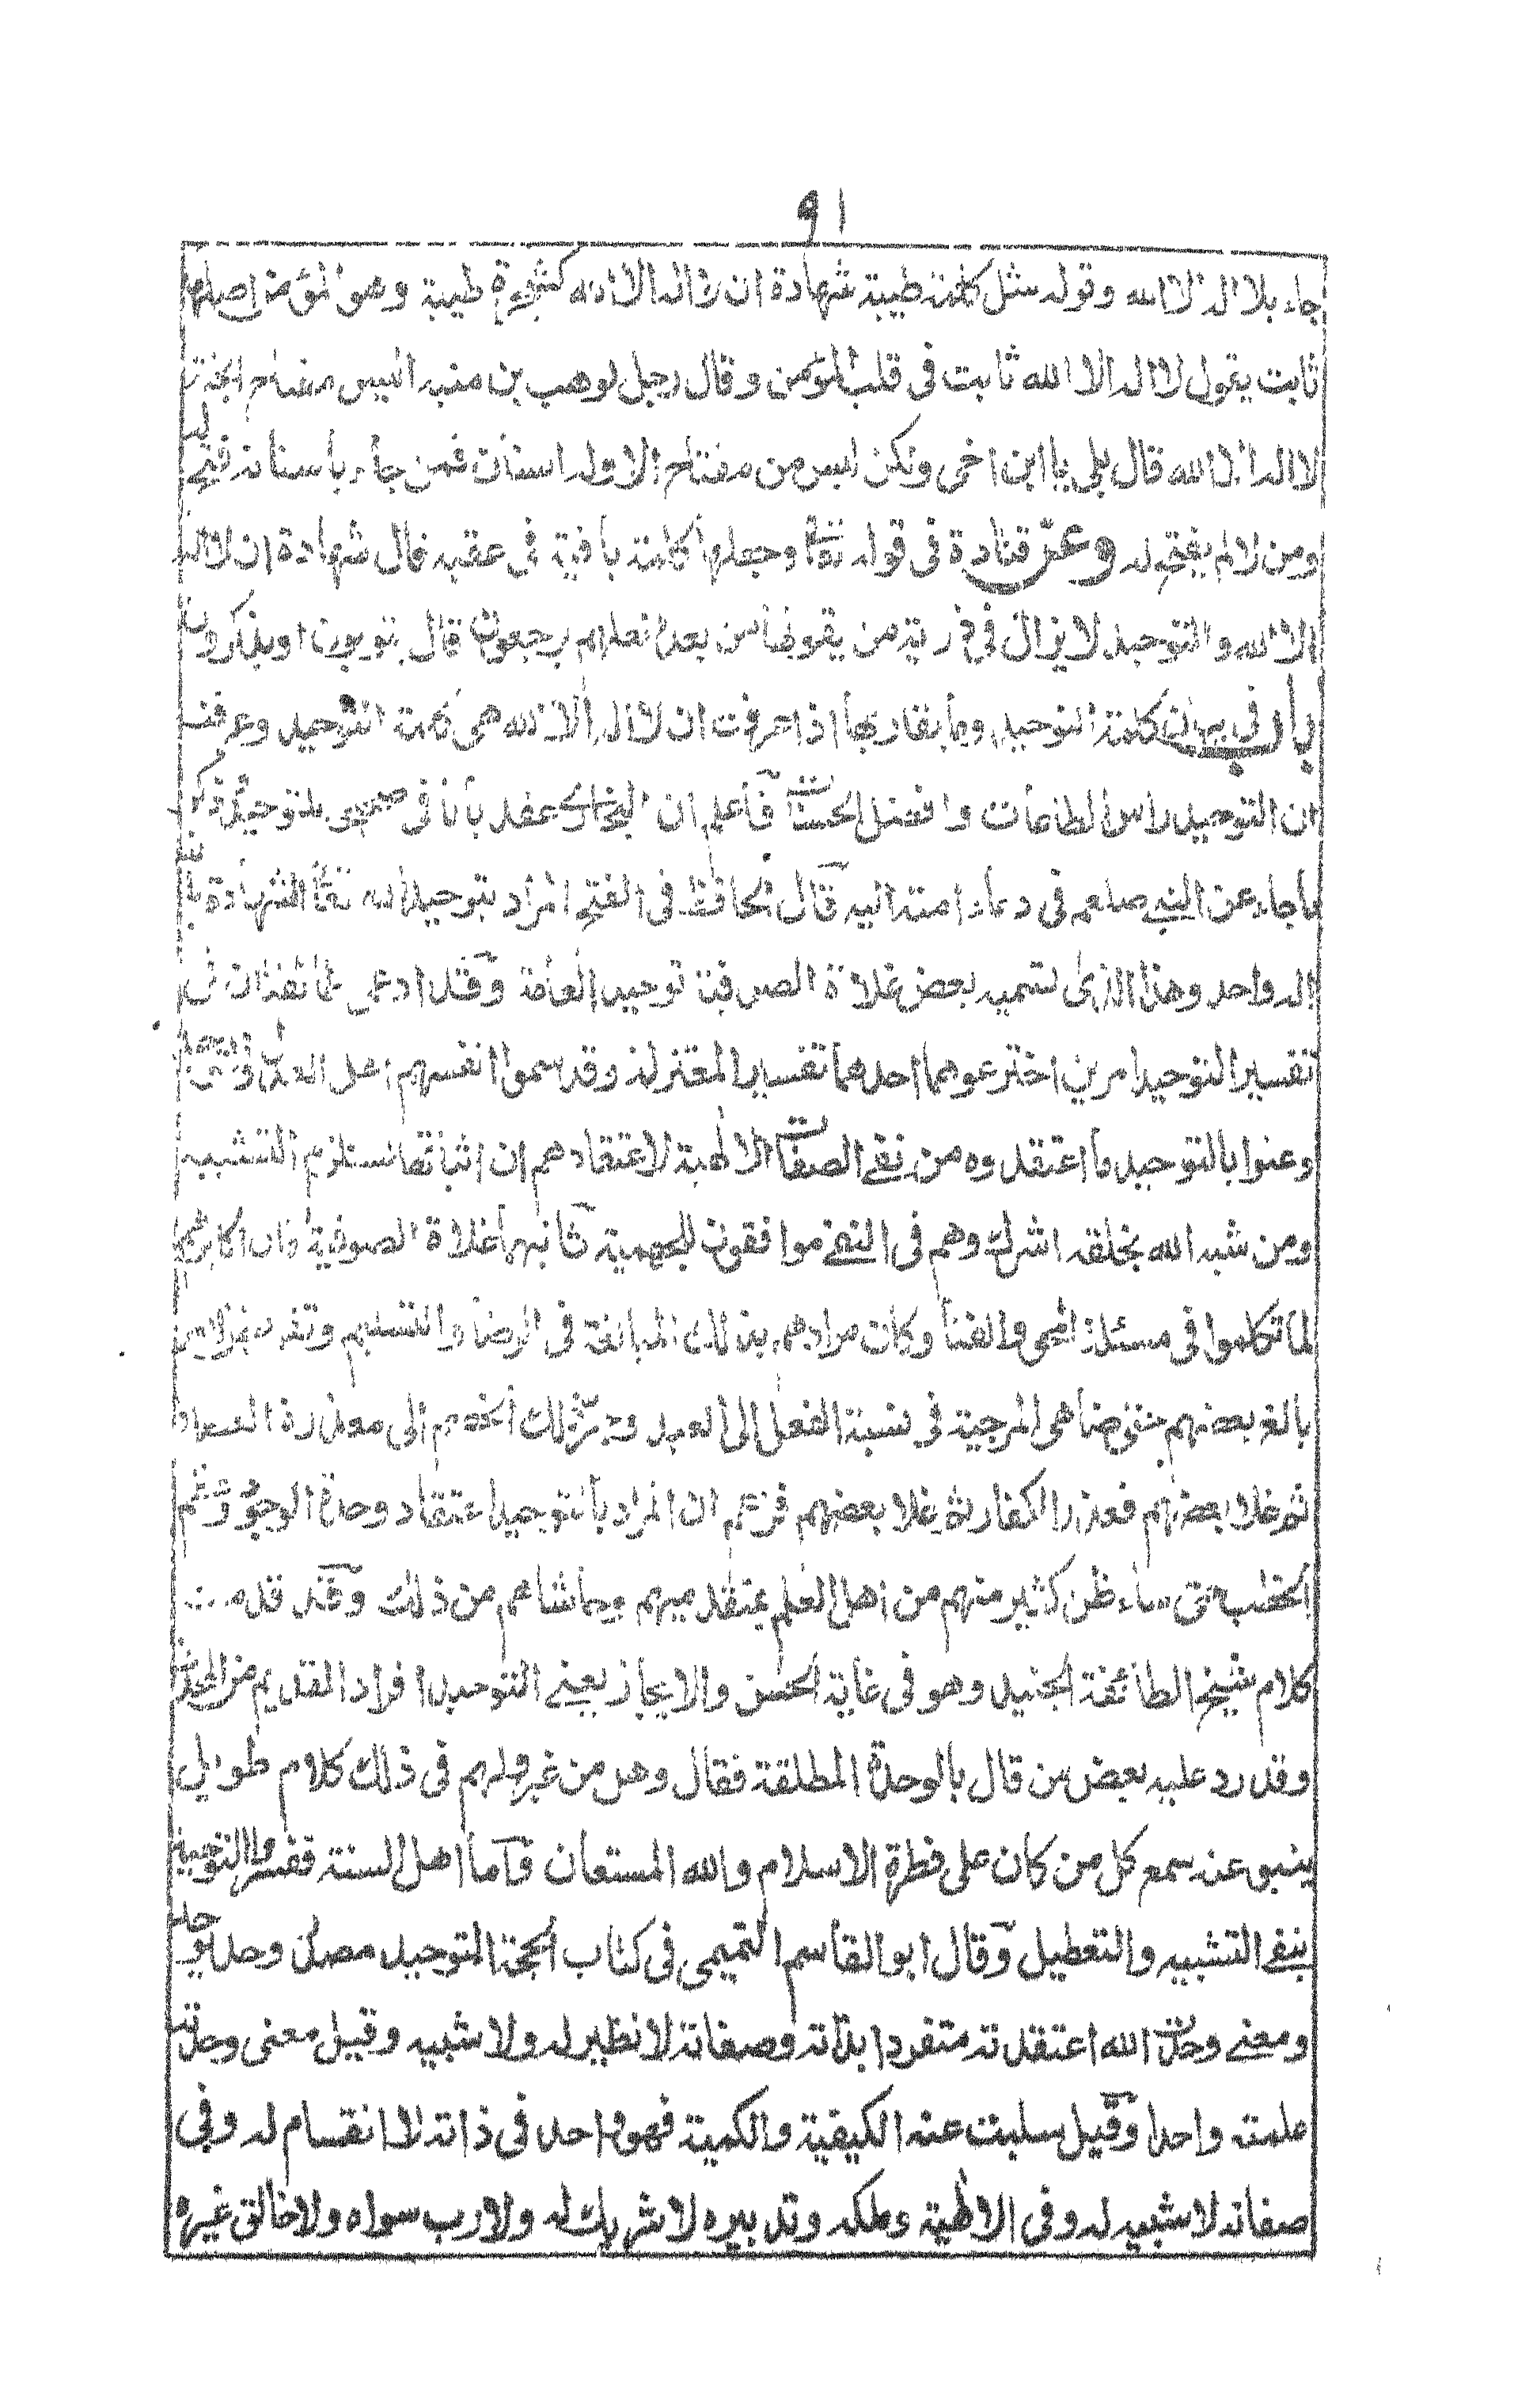 ٩١
جاء بلا اله الا الله وقوله مثل كلمة طيبة شهادة ان لا اله الا الله كشجرة طيبة وهو المؤمن اصلها
ثابت يقول لا اله الا الله ثابت فى قلب المؤمن وقال رجل لوهب بن منبه اليس مفتاح الجنة
لا اله الا الله قال بلى يا ابن اخى ولكن ليس من مفتاح الا وله اسنان فمن جاء باسنانه فتح له
ومن لا لم يفتح له وعن قتادة فى قوله تعالى وجعلها كلمة باقية فى عقبه قال شهادة ان لا اله
الا الله والتوحيد لا يزال فى ذريته من يقولها من بعده لعلهم يرجعون قال يتوبون او يذكرون
باب فى بيان كلمة التوحيد وما يقاربها اذا عرفت ان لا اله الا الله هى كلمة التوحيد وعرفت
ان التوحيد راس الطاعات وافضل الحسنات فاعلم ان البخارى عقد بابا فى صحيحه للتوحيد ذكر فيه
ما جاء عن النبى صلعم فى دعاء امته اليه قال الحافظ فى الفتح المراد بتوحيد الله تعالى الشهادة بانه
اله واحد وهذا الذى تسميه بعض غلاة الصوفية توحيد العامة وقد ادعى طائفتان فى
تفسير التوحيد امرين اخترعوهما احدهما تفسير المعتزلة وقد سموا انفسهم اهل العدل والتوحيد
وعنوا بالتوحيد ما اعتقدوه من نفى الصفات الالهية لاعتقادهم ان اثباتها يستلزم التشبيه
ومن شبه الله بخلقه اشرك وهم فى النفى موافقون للجهمية ثانيهما غلاة الصوفية فان اكابرهم
لما تكلموا فى مسئلة المحو والفناء وكان مرادهم بذلك المبالغة فى الرضا والتسليم وتفويض الامر
بالغ بعضهم حتى ضاهى المرجية فى نسبة الفعل الى العبد وجر ذلك بعضهم الى معذرة العصاة
ثم غلا بعضهم فعذر الكفار ثم غلا بعضهم فزعم ان المراد بالتوحيد اعتقاد وحدة الوجود وعظم
الخطب حتى ساء ظن كثير منهم من اهل العلم بمتقدميهم وحاشاهم من ذلك وقد قدمت
كلام شيخ الطائفة الجنيد وهو فى غاية الحسن والايجاز يعنى التوحيد افراد القديم من المحدث
وقد رد عليه بعض من قال بالوحدة المطلقة فقال وهل من غير ولهم فى ذلك كلام طويل
ينبو عنه سمع كل من كان على فطرة الاسلام والله المستعان فاما اهل السنة ففسروا التوحيد
بنفى التشبيه والتعطيل وقال ابو القاسم التميمى فى كتاب الحجة التوحيد مصدر وحد يوحد
ومعنى وحدت الله اعتقدته متفردا بذاته وصفاته لا نظير له ولا شبيه وقيل معنى وحدته
علمته واحدا وقيل سلبت عنه الكيفية والكمية فهو واحد فى ذاته لا انقسام له وفى
صفاته لا شبيه له وفى الالهية وملكه وتدبيره لا شريك له ولا رب سواه ولا خالق غيره